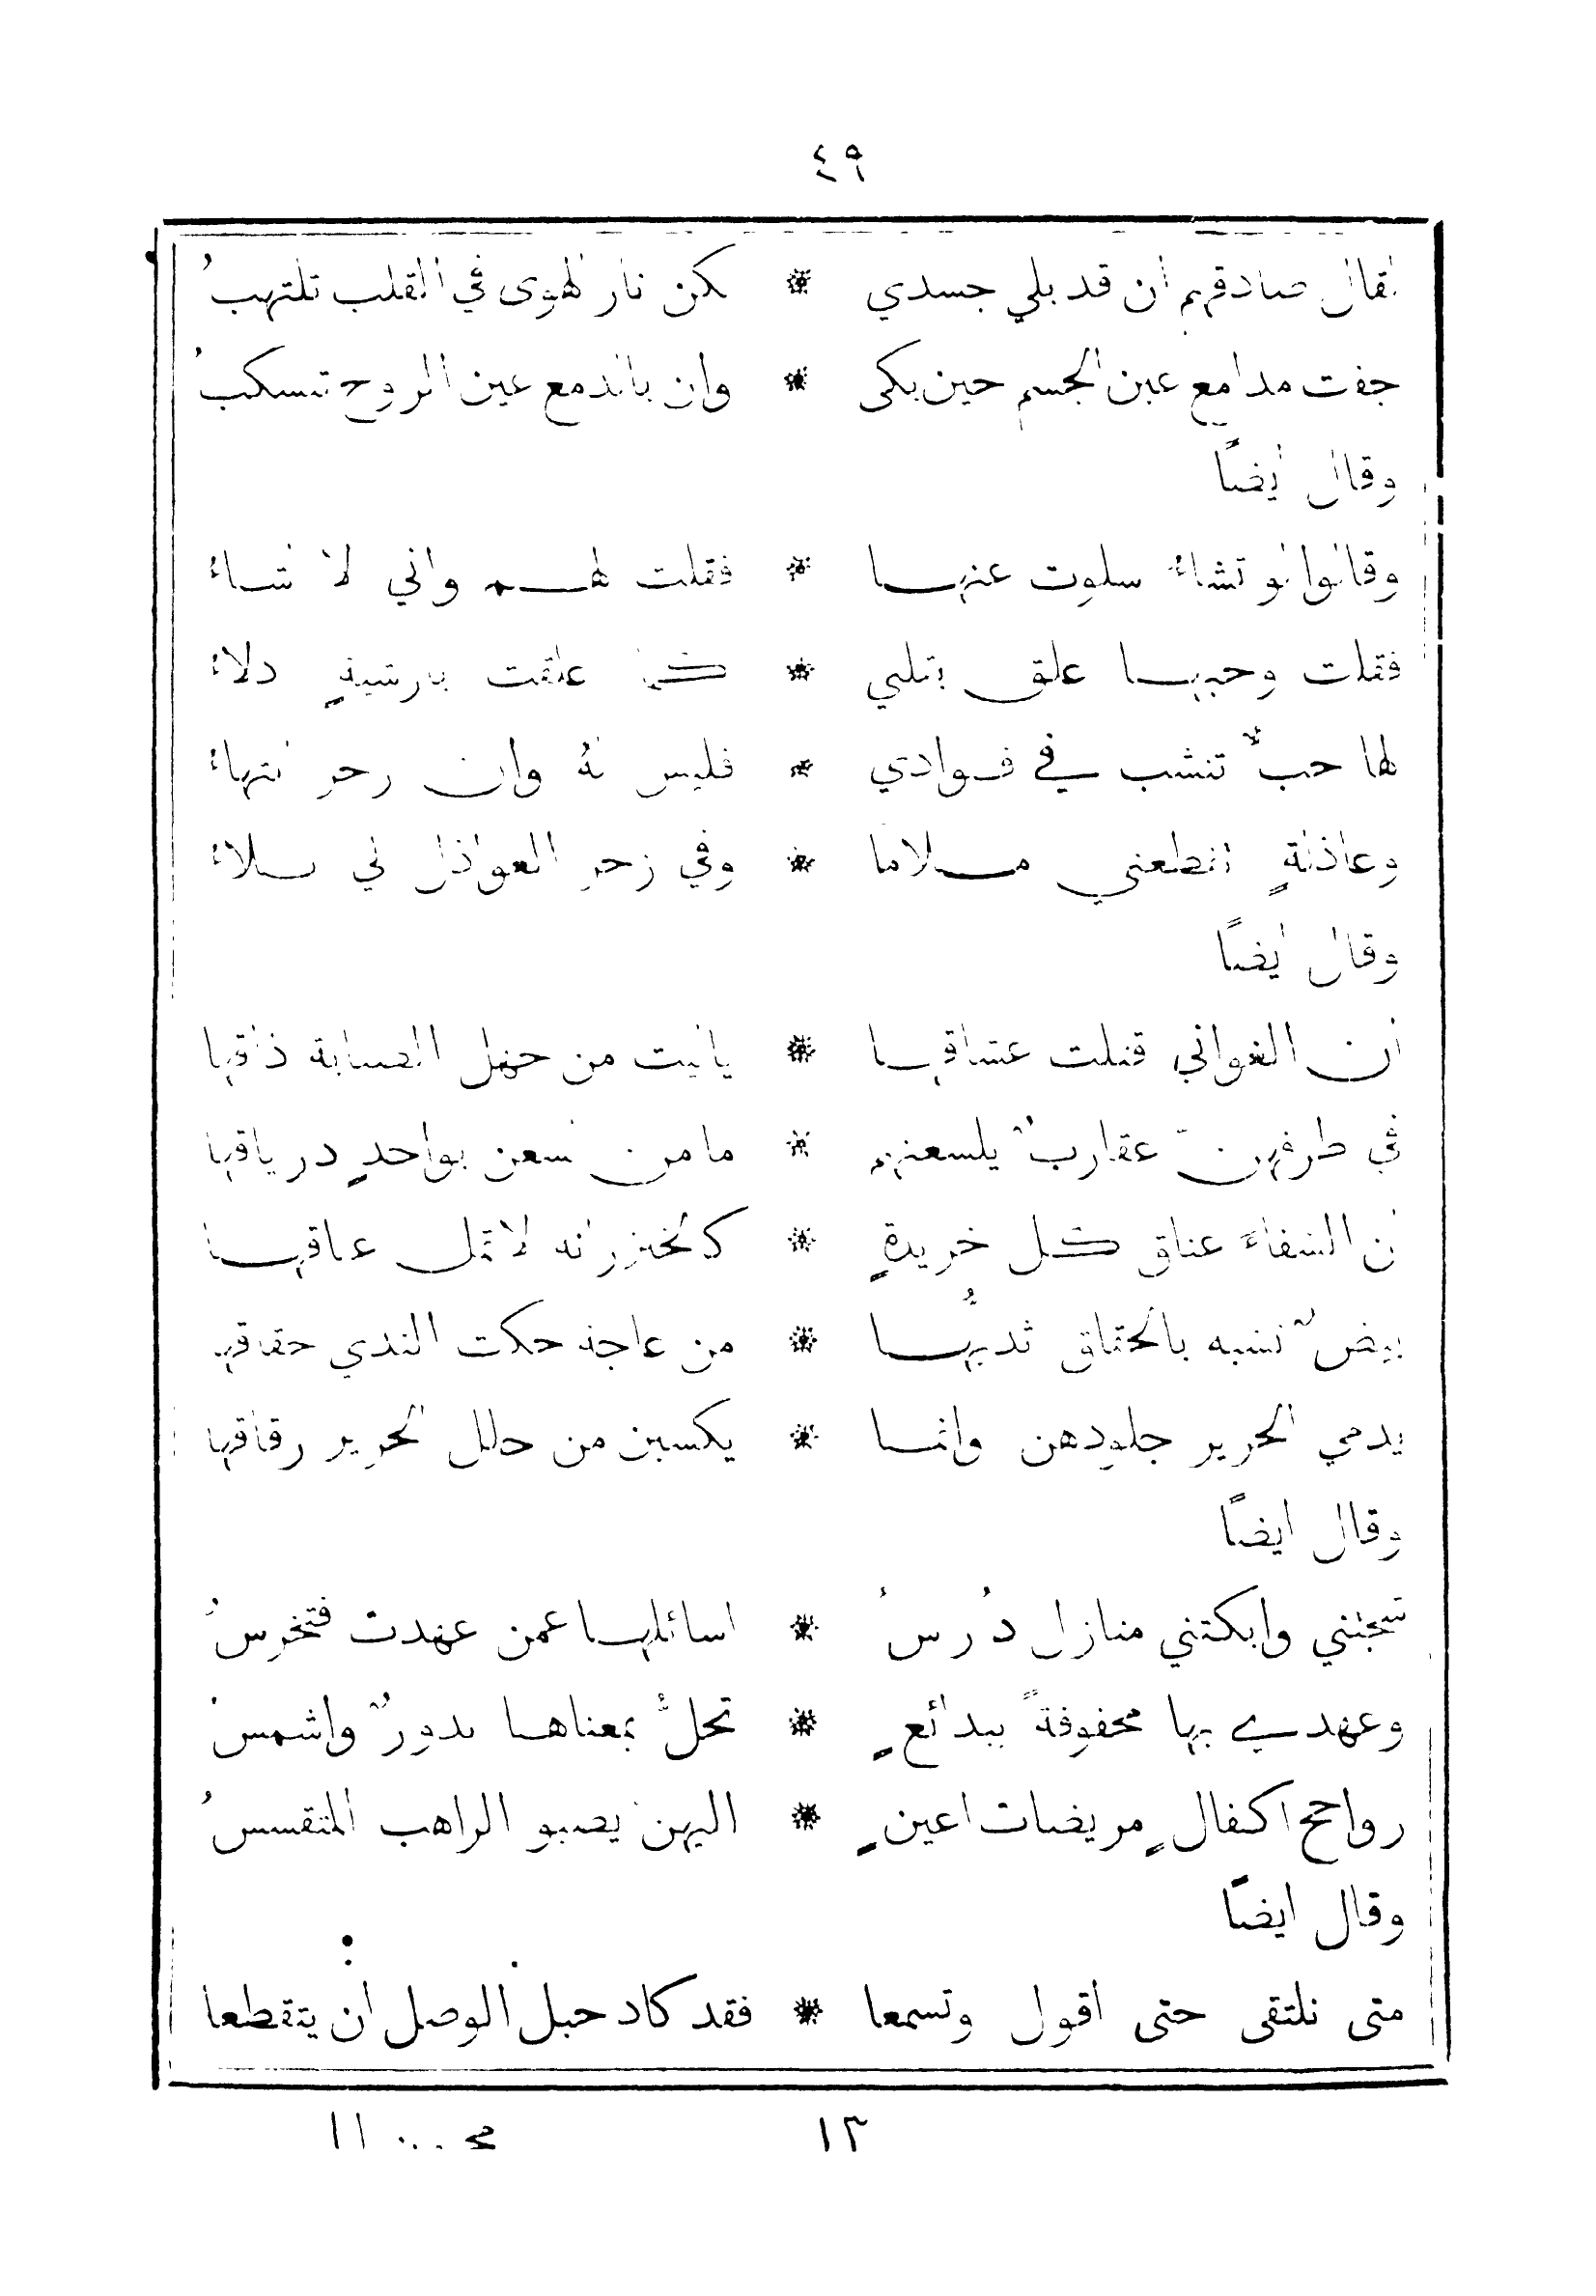 ٤٩
فقال صادقهم ان قد بلي جسدي * لكن نار الهوى في القلب تلتهبُ
جفت مدامع عين الجسم حين بكى * وان بالدمع عين الروح تنسكبُ
وقال ايضاً
وقالوا لو تشاءُ سلوت عنها * فقلت لهم واني لا اشاءُ
فقلت وحبها علق بقلبي * كما علقت بارشيةٍ دلاءُ
لها حبٌ تنشب في فوادي * فليس لهُ وان زجر انتهاءُ
وعاذلةٍ تقطعني ملاما * وفي زجر العواذل لي بلاءُ
وقال ايضاً
ان الغواني قتلت عشاقها * يا ليت من جهل الصبابة ذاقها
في طرفهنّ عقاربٌ يلسعنهم * ما من لسعن بواحدٍ درياقها
ان الشفاء عناق كل خريدةٍ * كالخيزرانه لا تمل عناقها
بيضٌ تشبه بالحقاق ثديُّها * من عاجة حكت الثدي حقاقها
يدمي الحرير جلودهن وانما * يكسين من حلل الحرير رقاقها
وقال ايضاً
شجتني وابكتني منازل دُرسُ * اسائلها عمن عهدت فتخرسُ
وعهدي بها محفوفةً ببدائعٍ * تحلُّ بمعناها بدورٌ واشمسُ
رواجح اكفالٍ مريضات اعينٍ * اليهن يصبو الراهب المتقسسُ
وقال ايضاً
متى نلتقى حتى اقول وتسمعا * فقد كاد حبل الوصل ان يتقطعا
١٣